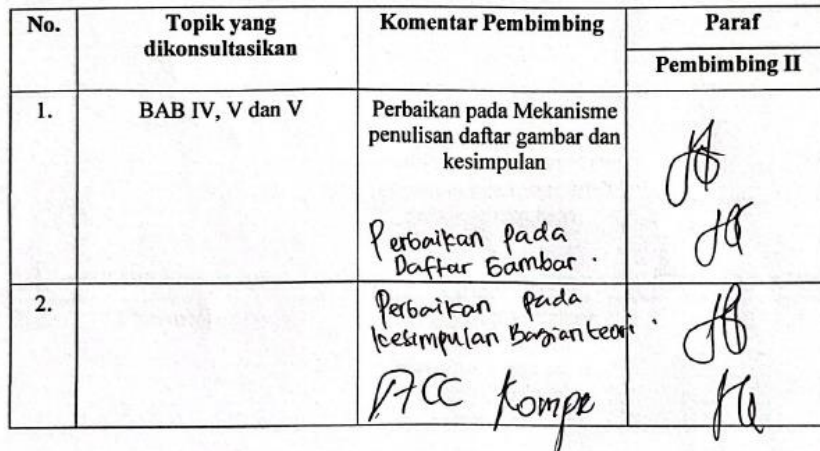 No.
Topik yang
dikonsultasikan
Komentar Pembimbing
Paraf
Pembimbing II
1.
BAB IV, V dan V
Perbaikan pada Mekanisme
penulisan daftar gambar dan
kesimpulan
Perbaikan pada
Daftar Gambar.
2.
Perbaikan pada
kesimpulan Bagian teori.
ACC